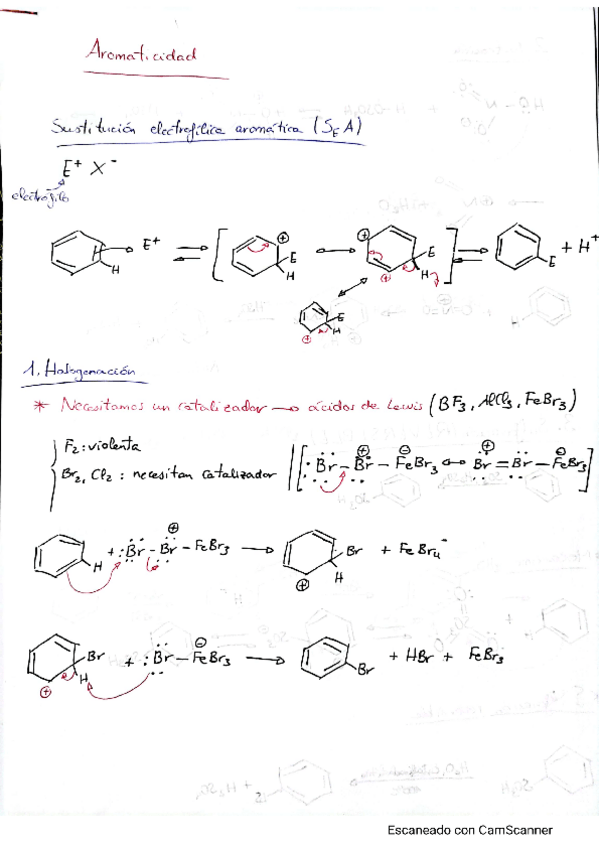 Aromaticidad
Sustitución electrofílica aromática (SEA)
E+ X-
electrófilo
H H E+ ⊕ E H ⊕ E H ⊕ E + H+
E H ⊕
1. Halogenación
* Necesitamos un catalizador → ácidos de Lewis (BF3, AlCl3, FeBr3)
F2: violenta
Br2, Cl2: necesitan catalizador [:Br - Br⊕ - FeBr3⊖ ↔ Br⊕ = Br - FeBr3⊖]
H + :Br - Br⊕ - FeBr3 → Br H ⊕ + FeBr4-
Br H ⊕ + :Br - FeBr3⊖ → Br + HBr + FeBr3
Escaneado con CamScanner